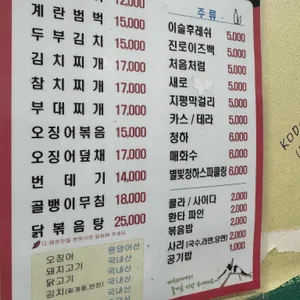 계란범벅 12,000
두부김치 15,000
김치찌개 17,000
참치찌개 17,000
부대찌개 17,000
오징어볶음 15,000
오징어덮채 17,000
번데기 14,000
골뱅이무침 18,000
닭볶음탕 25,000
오징어 원양어선
돼지고기 국내산
닭고기 국내산
김치(찌개용,반찬) 국내산
주류
이슬후레쉬 5,000
진로이즈백 5,000
처음처럼 5,000
새로 5,000
지평막걸리 5,000
카스 / 테라 5,000
청하 6,000
매화수 6,000
별빛청하스파클링 6,000
콜라 / 사이다 2,000
환타 파인 2,000
볶음밥 2,000
사리 (국수,라면,당면) 2,000
공기밥 1,000